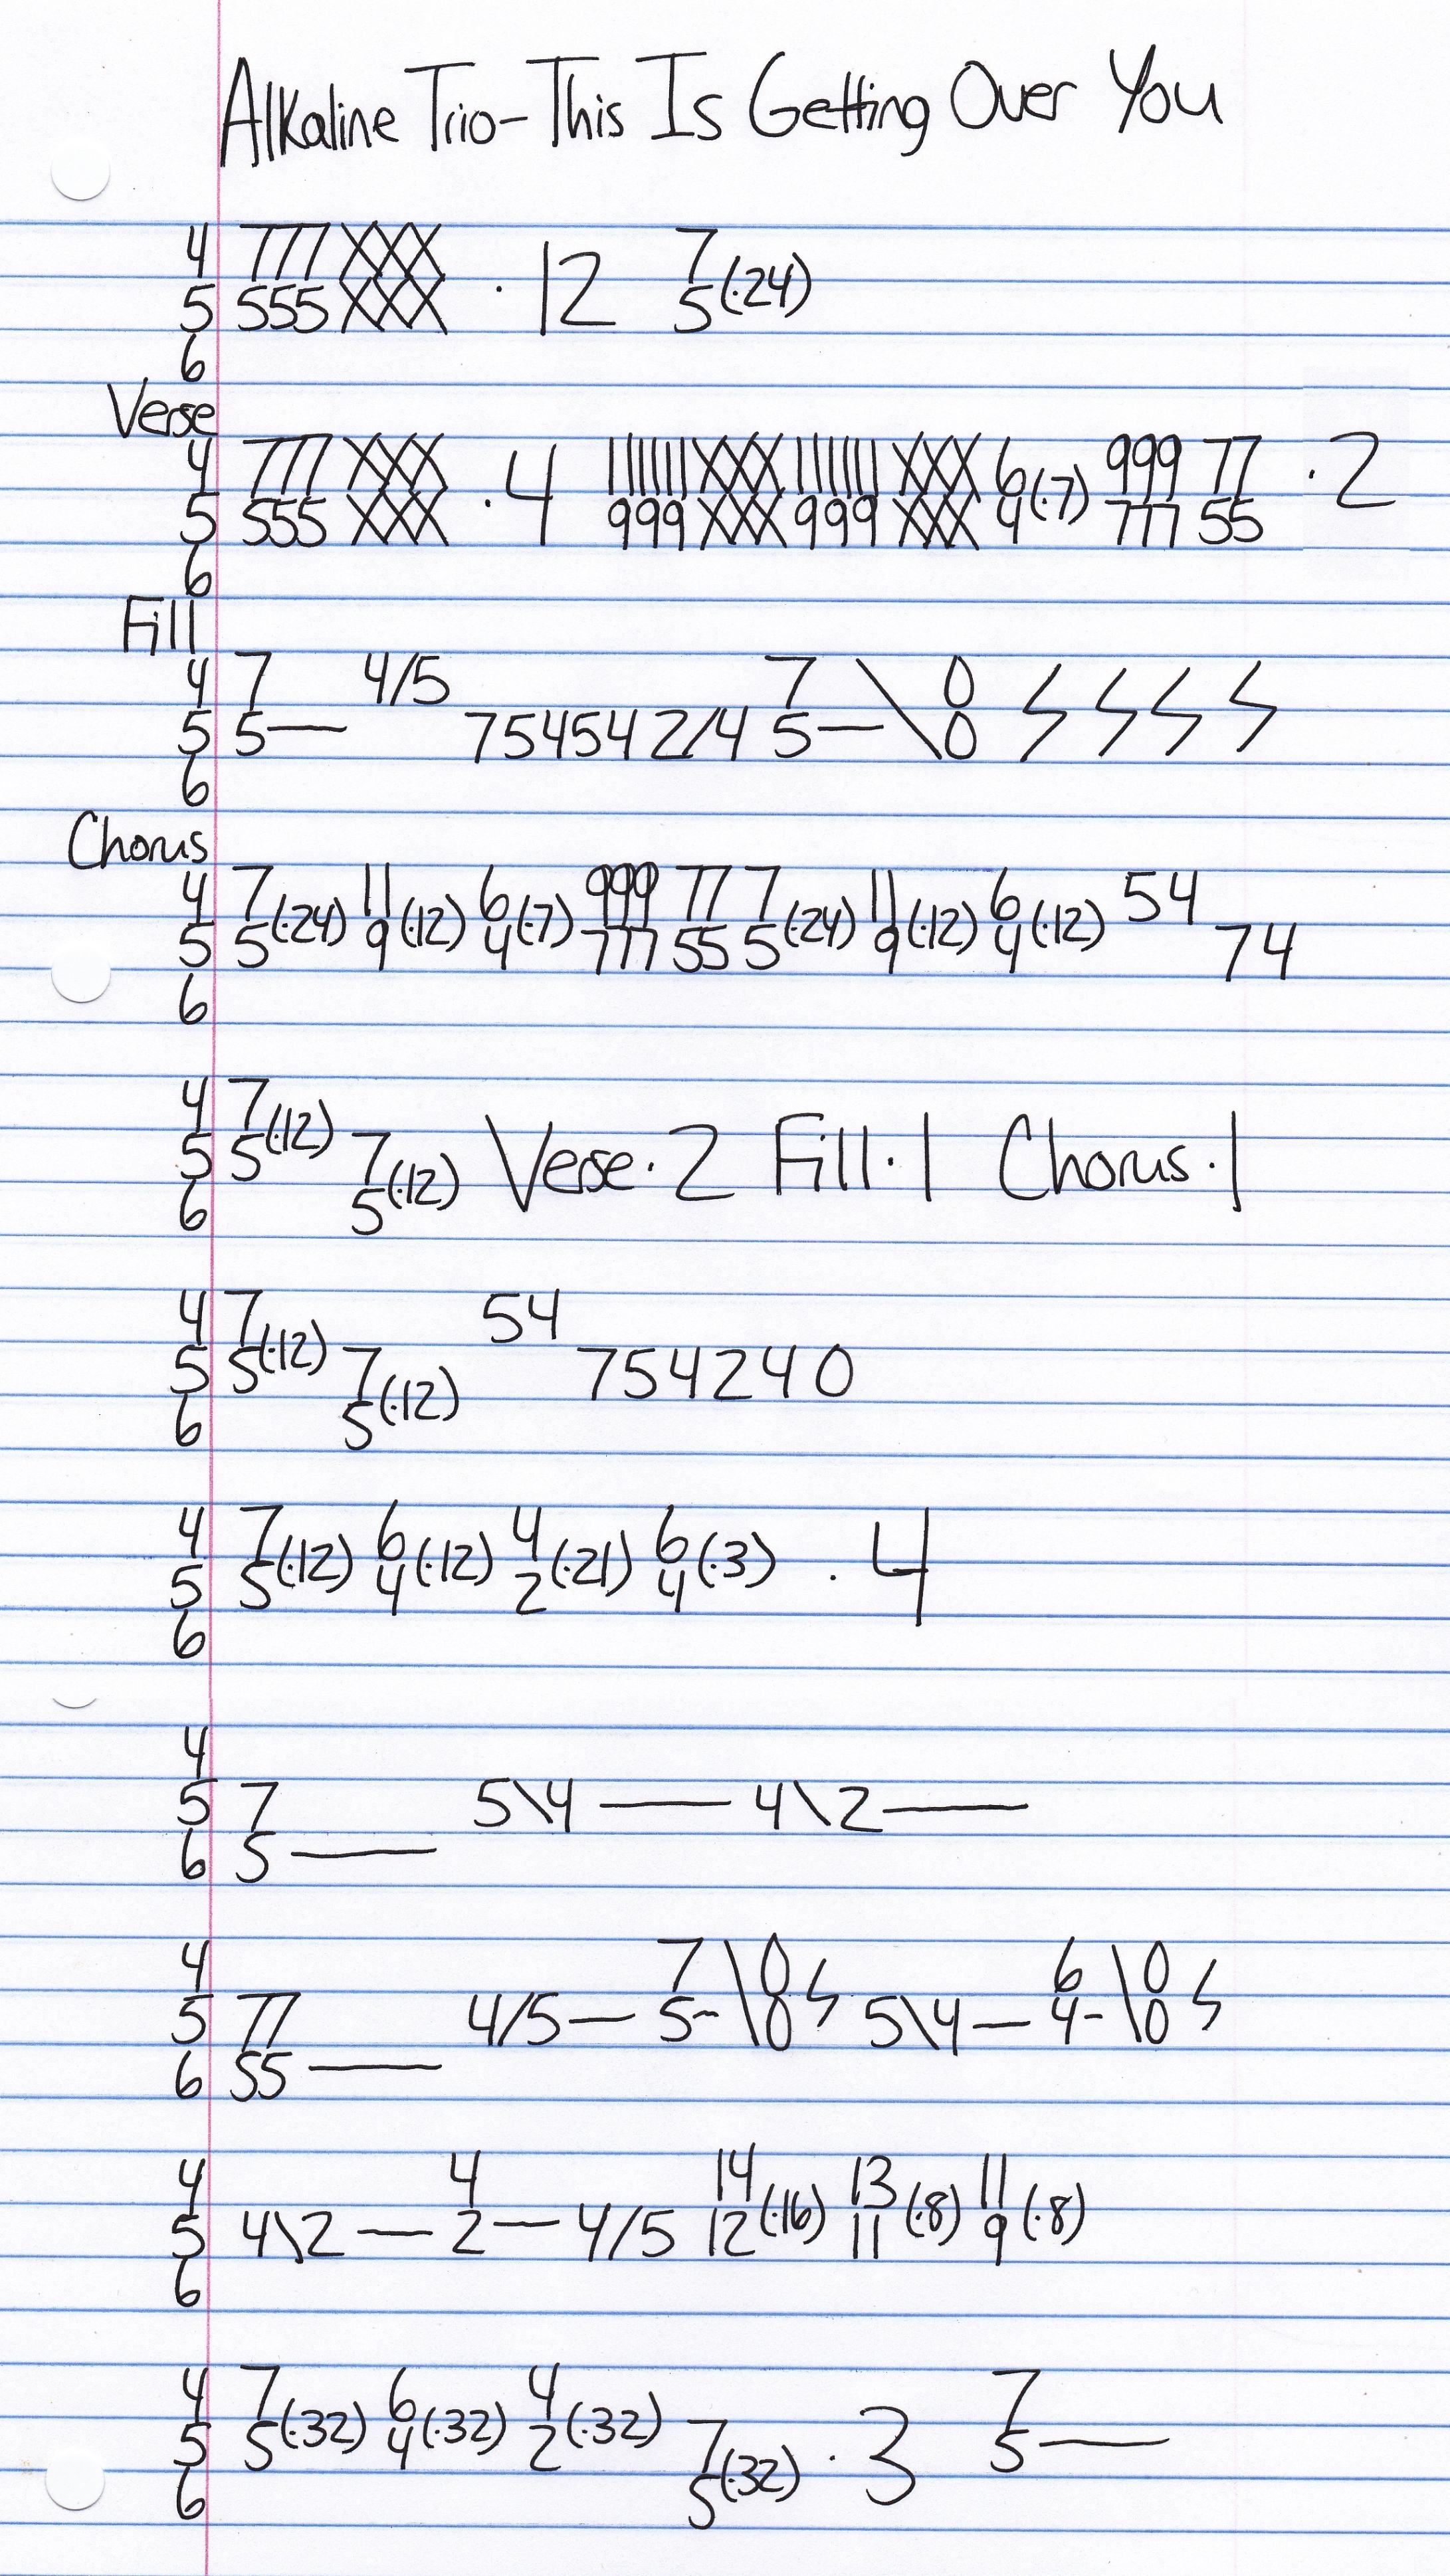 Alkaline Trio-This Is Getting Over You
4 777 XXX
5 555 XXX · 12 7/5 (·24)
6
Verse
4 777 XXX 11 11 11 XXX 11 11 11 XXX 6 999 77
5 555 XXX · 4 999 XXX 999 XXX 4 (·7) 777 55 · 2
6
Fill
4 7 4/5 7 \ 0 ϟ ϟ ϟ ϟ
5 5— 754542/4 5— \ 0
6
Chorus
4 7 11 6 999 77 7 11 6 54
5 5 (·24) 9 (·12) 4 (·7) 777 55 5 (·24) 9 (·12) 4 (·12) 74
6
4 7
5 5 (·12) 7 Verse · 2 Fill · 1 Chorus · 1
6 5 (·12)
4 7 54
5 5 (·12) 7 754240
6 5 (·12)
4 7 6 4 6
5 5 (·12) 4 (·12) 2 (·21) 4 (·3) · 4
6
4
5 7 5\4 — 4\2 —
6 5 —
4 7 \ 0 ϟ 6 \ 0 ϟ
5 77 4/5 — 5- \ 0 5\4 — 4- \ 0
6 55 —
4 4 14 13 11
5 4\2 — 2 — 4/5 12 (·16) 11 (·8) 9 (·8)
6
4 7 6 4 7
5 5 (·32) 4 (·32) 2 (·32) 7 · 3 5 —
6 5 (·32)